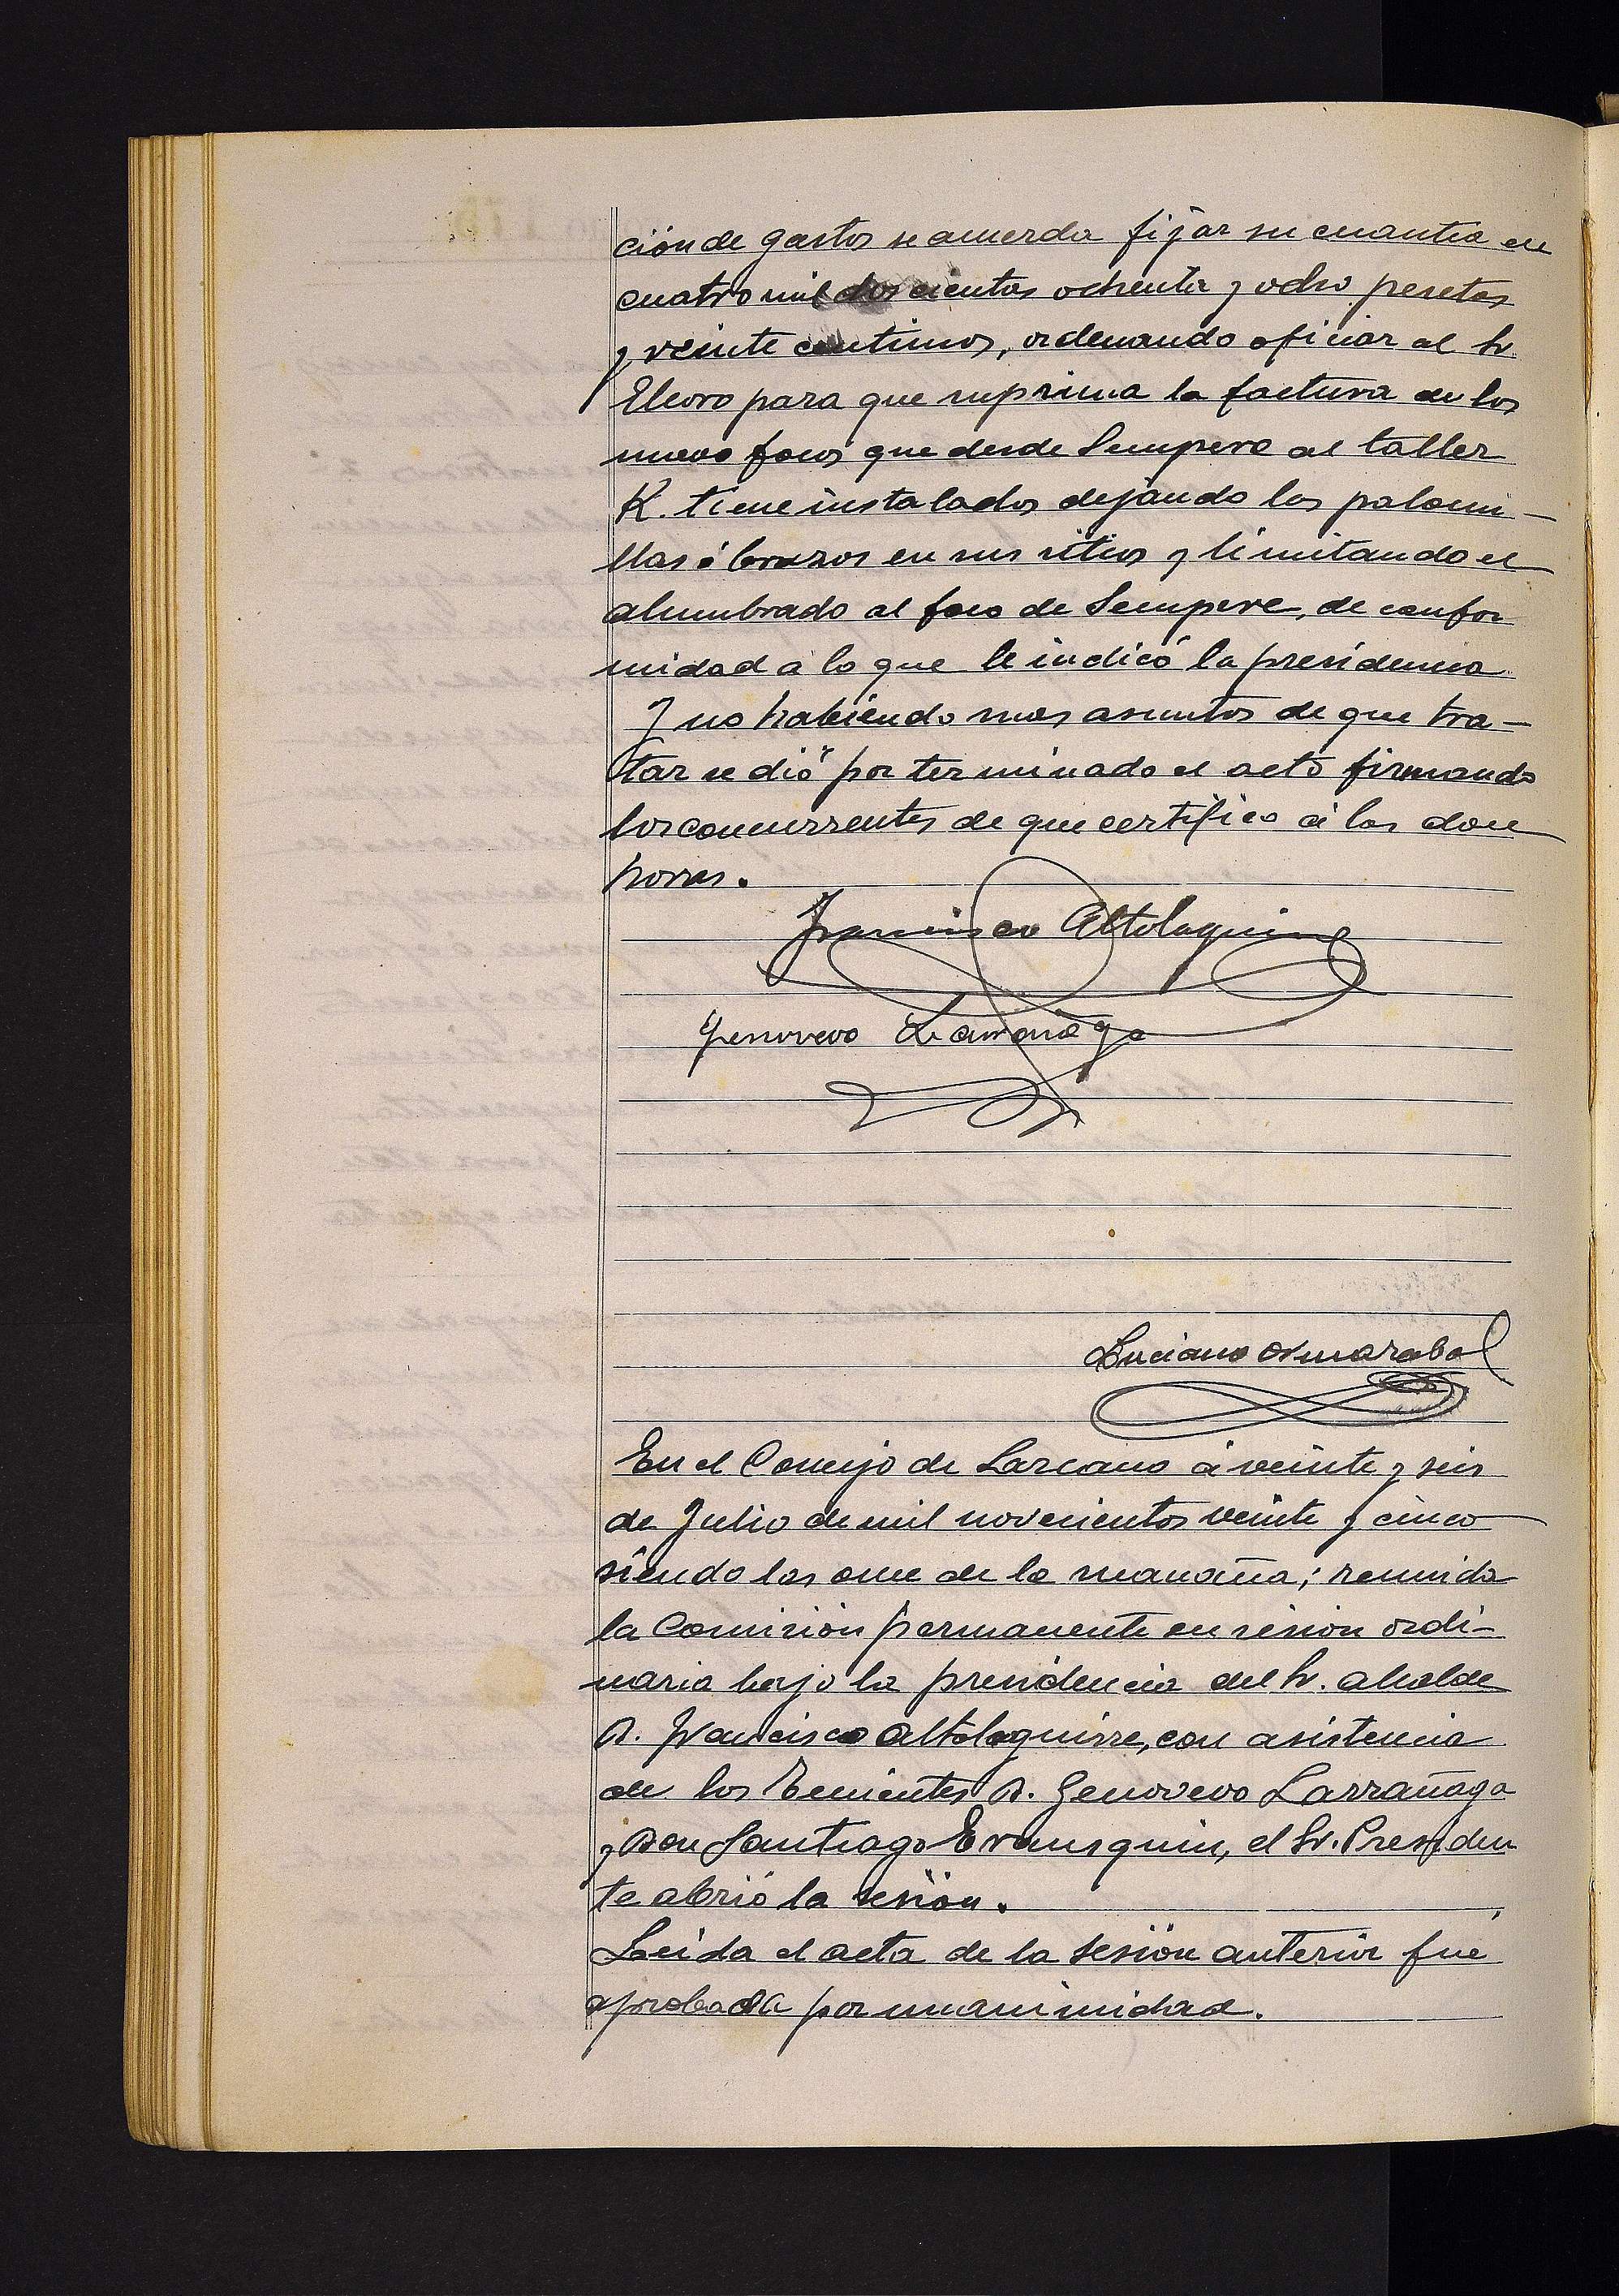 ción de gastos se acuerda fijar su cuantia en
cuatro mil doscientas ochenta y ocho pesetas
y veinte centimos, ordenando oficiar al Sr.
Elcoro para que suprima la factura de los
nueve focos que desde Sempere al taller
K. tiene instalados dejando las palomi-
llas ó brazos en sus sitios y limitando el
alumbrado al foco de Sempere, de confor
midad á lo que le indicó la presidencia.
Y no habiendo mas asuntos de que tra-
tar se dió por terminado el acto firmando
los concurrentes de que certifico á las doce
horas.
Francisco Altolaguirre
Genovevo Larrañaga
Luciano
En el Concejo de Lazcano á veinte y seis
de Julio de mil novecientos veinte y cinco
siendo las once de la mañana; reunida
la Comisión permanente en sesion ordi-
naria bajo la presidencia del Sr. alcalde
D. Francisco Altolaguirre, con asistencia
de los Tenientes D. Genovevo Larrañaga
y Don Santiago Erausquin, el Sr. Presiden
te abrió la sesión.
Leida el acta de la sesión anterior fue
aprobada por unanimidad.